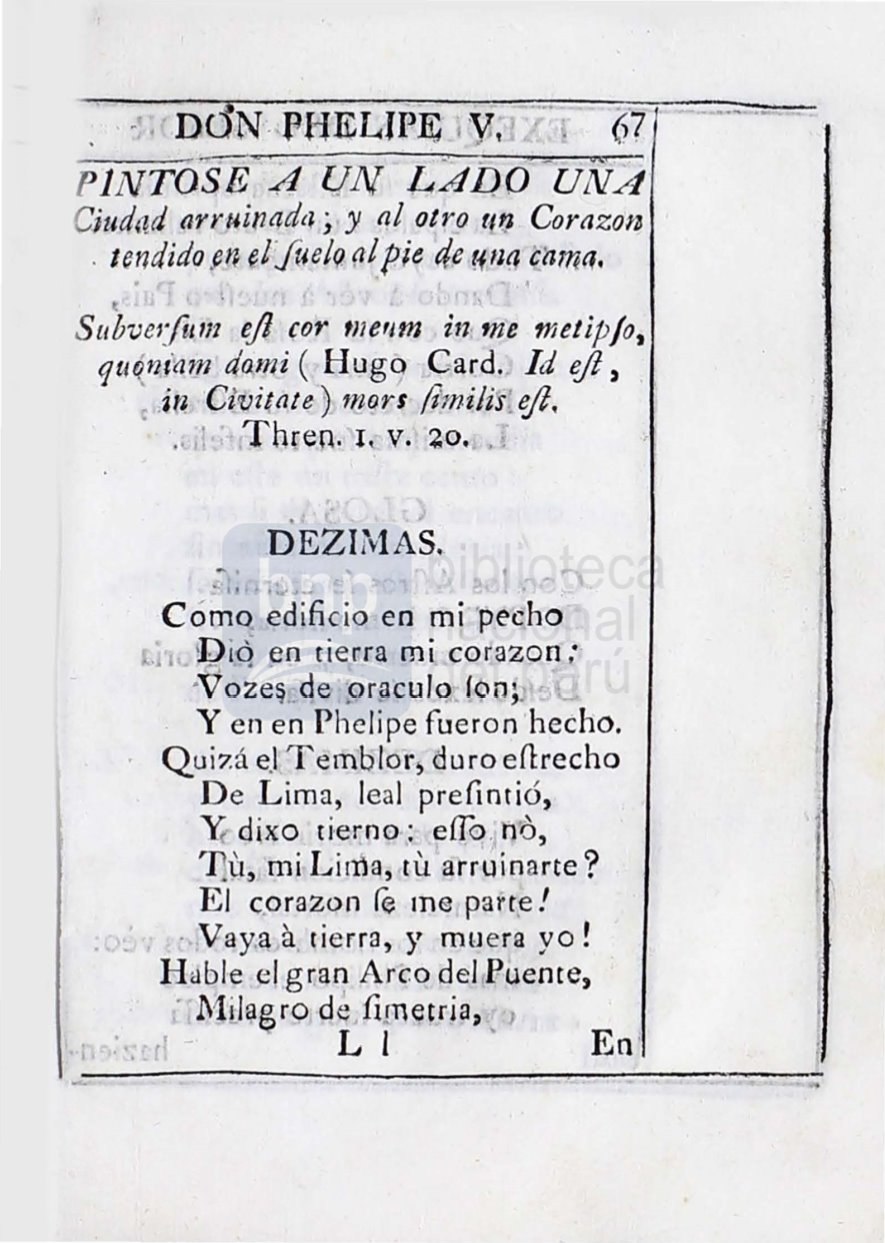 DON PHELIPE V. 67
PINTOSE A UN LADO UNA
Ciudad arruinada; y al otro un Corazon
tendido en el ſuelo al pie de una cama.
Subverſum eſt cor meum in me metipſo,
quoniam domi ( Hugo Card. Id eſt,
in Civitate ) mors ſimilis eſt.
Thren. 1. v. 20.
DEZIMAS.
Como edificio en mi pecho
Diò en tierra mi corazon:
Vozes de oraculo ſon;
Y en en Phelipe fueron hecho.
Quizá el Temblor, duro eſtrecho
De Lima, leal preſintió,
Y dixo tierno: eſſo nò,
Tù, mi Lima, tù arruinarte?
El corazon ſe me parte!
Vaya à tierra, y muera yo!
Hable el gran Arco del Puente,
Milagro de ſimetria,
L l En
bnp biblioteca
nacional
del perú